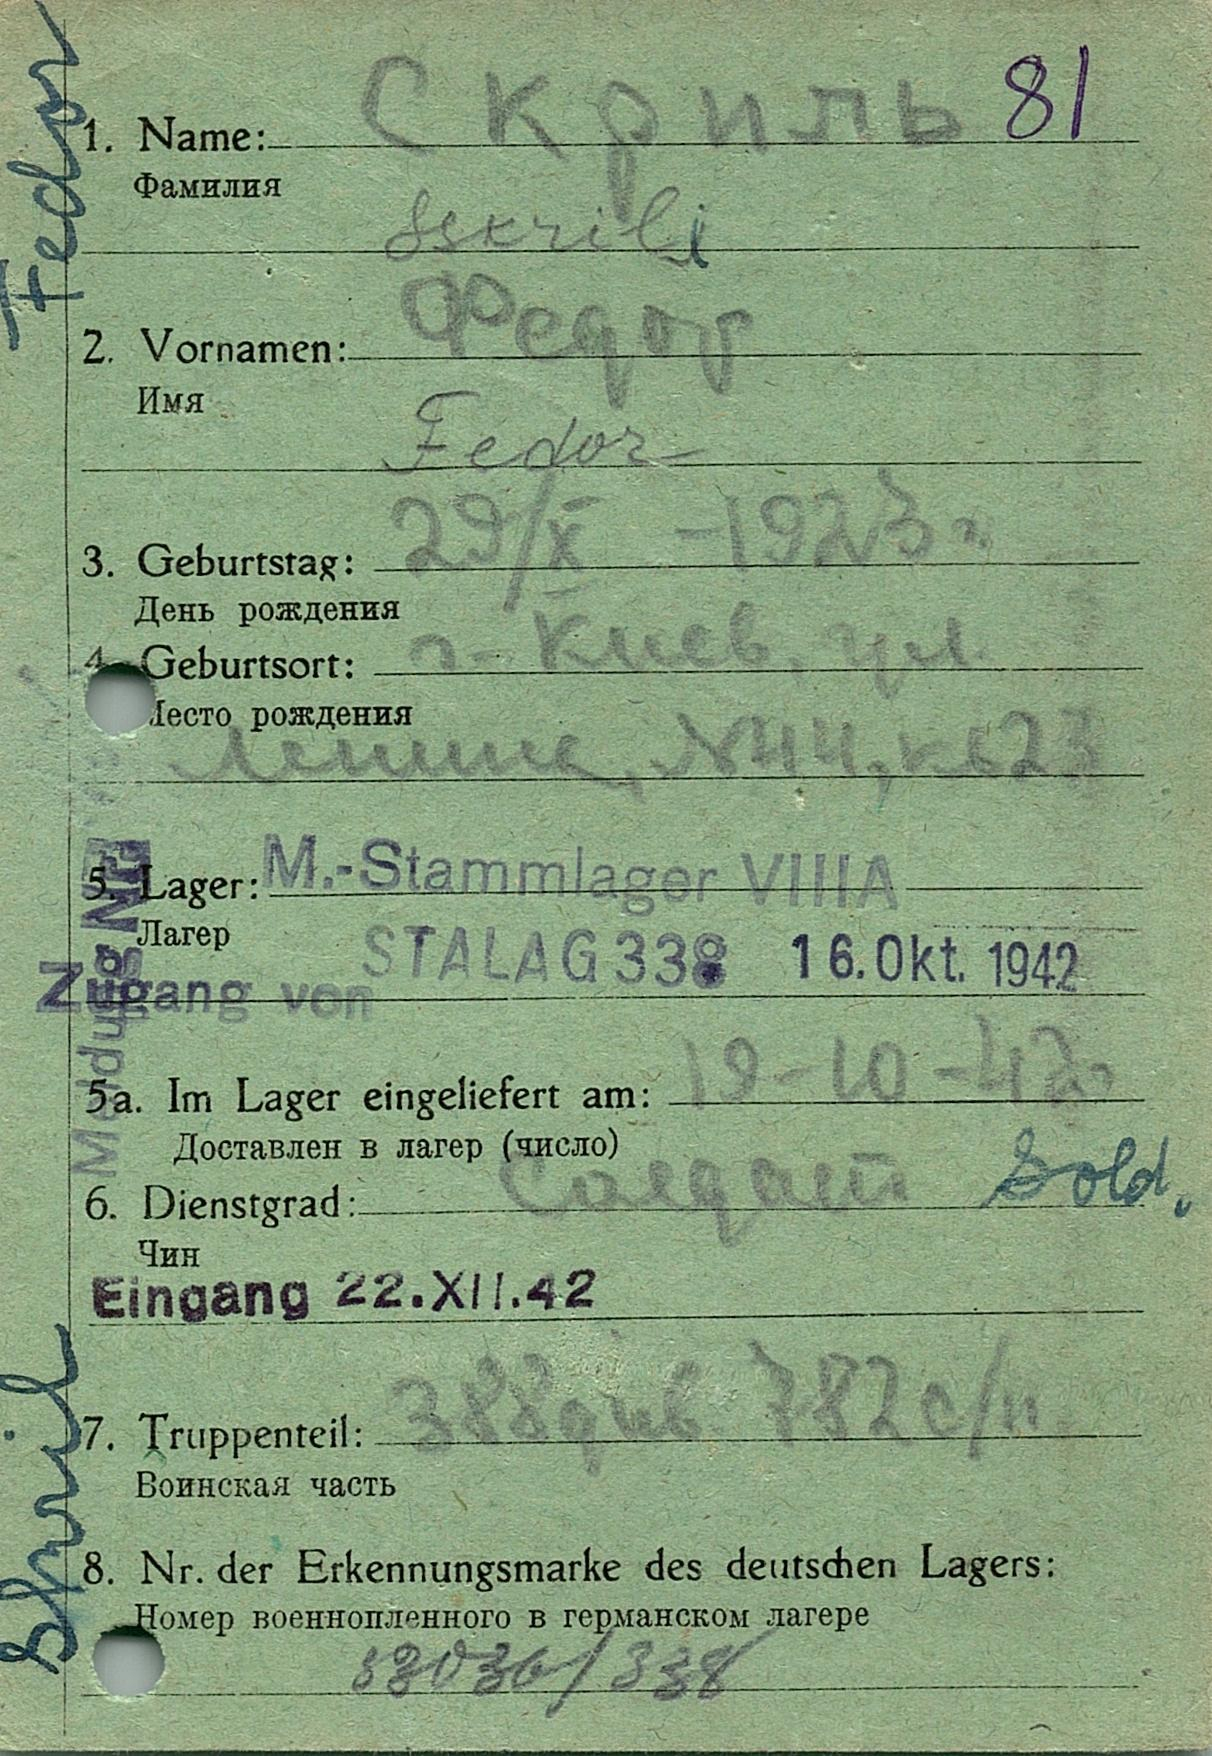 Скриль 81
1. Name:
Фамилия
Sskrili
Федор
2. Vornamen:
Имя
Fedor
3. Geburtstag: 29/X - 1923 г.
День рождения
4. Geburtsort: г. Киев, ул.
Место рождения
Ленина, №44, кв 23
5. Lager: M.-Stammlager VIIIA
Лагер
STALAG 338 16. Okt. 1942
Zugang von
5a. Im Lager eingeliefert am: 19-10-42
Доставлен в лагер (число)
6. Dienstgrad: Солдат Sold.
Чин
Eingang 22.XII.42
7. Truppenteil: 388 див 782 с/п.
Воинская часть
8. Nr. der Erkennungsmarke des deutschen Lagers:
Номер военнопленного в германском лагере
/338
Fedor
Meldung Nr.